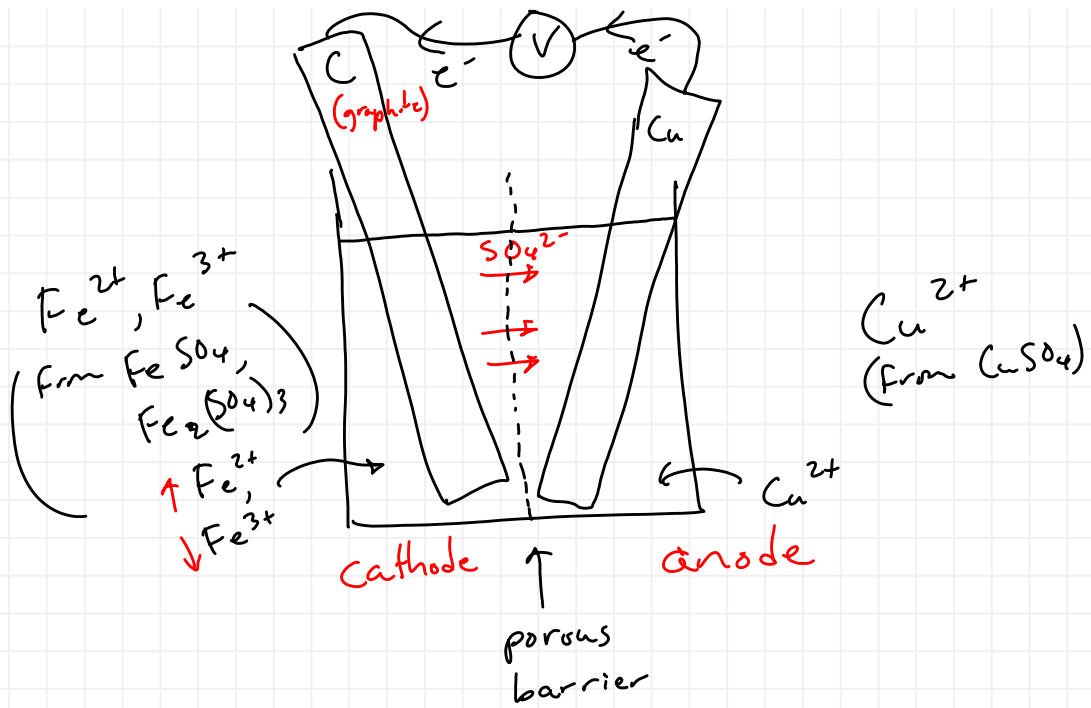 C
(graphite)
e⁻
V
e⁻
Cu
SO₄²⁻
Fe²⁺, Fe³⁺
(from FeSO₄,
Fe₂(SO₄)₃)
↑ Fe²⁺,
↓ Fe³⁺
Cu²⁺
(from CuSO₄)
Cu²⁺
cathode
anode
porous
barrier